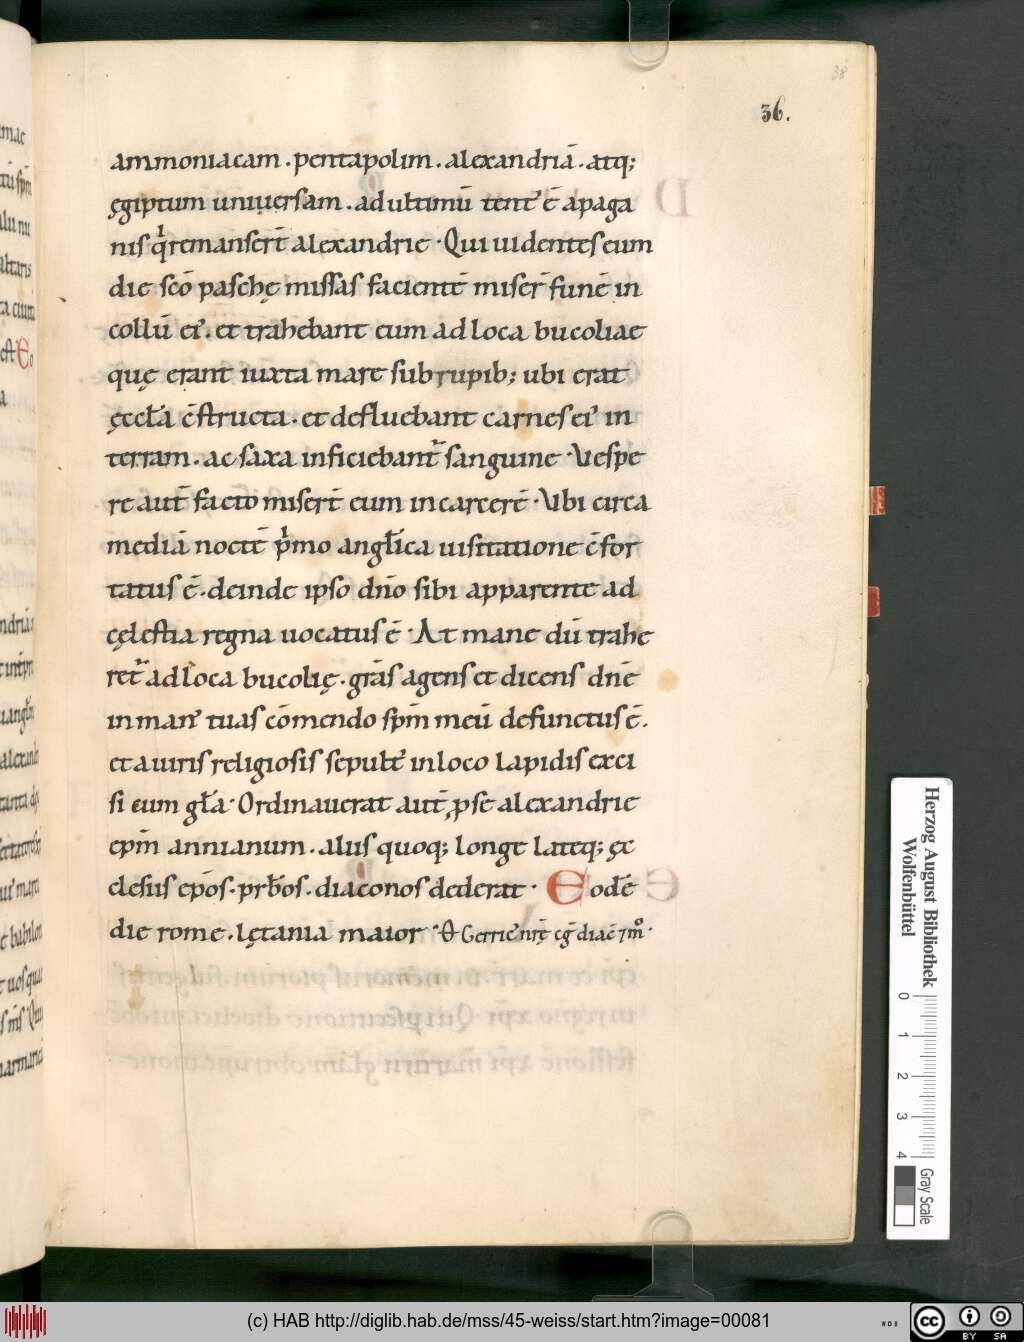 38
36.
ammoniacam. pentapolim. alexandriā. atq;
ęgiptum uniuersam. ad ultimū tent᷒ ē apaga
nis q̇ remanserꝉ alexandrie. Qui uidentes eum
die sc̄o paschę missas facientē miserꝉ funē in
collū ei᷒. et trahebant eum ad loca bucoliae
quę erant iuxta mare sub rupib; ubi erat
ęccl̄a c̄structa. et defluebant carnes ei᷒ in
terram. ac saxa inficiebant᷒ sanguine. Vespe
re aut̄ facto miser̄t eum in carcerē. Vbi circa
mediā noctē p̓mo angl̄ica uisitatione c̄for
tatus ē. deinde ipso dn̄o sibi apparente ad
cęlestia regna uocatus ē. At mane dū trahe
ret᷒ ad loca bucolię. gr̄as agens et dicens dn̄e
in man᷒ tuas cōmendo sp̄m meū defunctus ē.
et a uiris religiosis sepult᷒ in loco lapidis exci
si cum gl̄a. Ordinauerat aut̄ p̱ se alexandrie
ep̄m annianum. aliis quoq; longe lateq; ęc
clesiis ep̄os. prb̄os. diaconos dederat. Eodē
die rome. lętania maior.
(c) HAB http://diglib.hab.de/mss/45-weiss/start.htm?image=00081
Herzog August Bibliothek
Wolfenbüttel
0 1 2 3 4
Gray Scale
WDB
cc BY SA